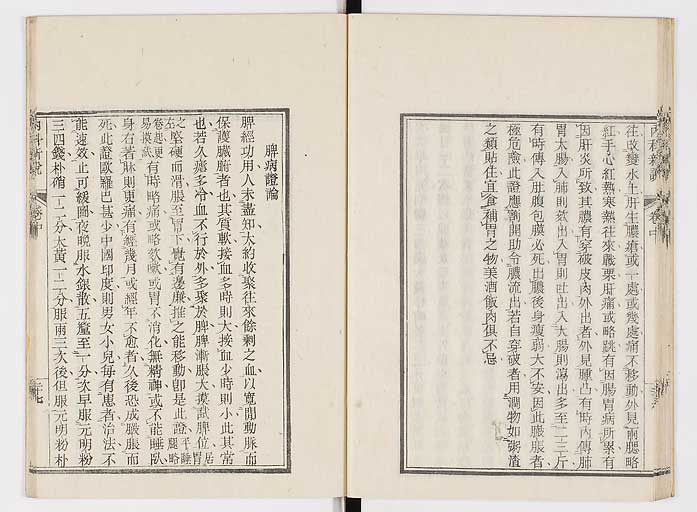 內科新說 卷中
往改變水生肝生膿瘡或一處或幾處痛不移動外見兩腮略
紅手心紅熱寒熱往來戰栗肝痛或略跳有因腸胃病所累有
因肝炎所致其膿有穿破皮肉外出者外見腫凸有時內傳肺
胃大腸入肺則欬出入胃則吐出入大腸則瀉出多至一二三斤
有時傳入肚腹包膜必死出膿後身瘦弱大不安因此臌脹者
極危險此證應割開助令膿流出若自穿破者用潤物如粥渣
之類貼住宜食補胃之物美酒飯肉俱不忌
脾病證論
脾經功用人未盡知大約收聚往來餘剩之血以寬閒動脈而
保護臟腑者也其質軟接血多時則大接血少時則小此其常
也若久瘧多冷血不行於外多聚於脾脾漸脹大摸試脾位
之堅硬而滑脹至胃下覺有邊廉推之能移動卽是此證
有時略痛或略欬嗽或胃不消化無精神或不能睡臥
身右者眠則更痛有經幾月或經年不愈者久後恐成臌脹而
死此證歐羅巴甚少中國印度則男女小兒每有患者治法不
能速效止可緩圖夜晚服水銀散五釐至一分次早服元明粉
三四錢朴硝一二分大黃一二分服兩三次後但服元明粉朴
內科新說 卷中